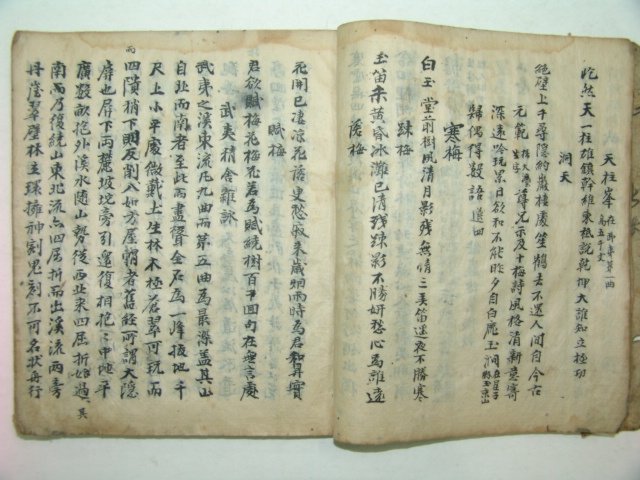 天柱峯 在卽第一曲 高五千丈
屹然天一柱雄鎭幹維東秪說乾坤大誰知立極功
洞天
絶壁上千尋隱約巖棲處笙鶴去不還人間自今古
元範 尊兄示及十梅詩風格清新意寄
深遠吟玩累日欲和不能昨夕自白鹿玉洞
歸偶得數語還四
寒梅
白玉堂前樹風清月影殘無情三弄笛遙夜不勝寒
踈梅
玉笛未黃昏冰灘已清殘踈影不勝姸愁心爲誰遠
落梅
花開已凄凉花落更愁寂來歲烟雨時爲君和羮實
賦梅
君欲賦梅花梅花若爲賦繞樹百千回句在無言處
武夷精舍雜詠
武夷之溪東流凡九曲而第五曲爲最深盖其山
自北而南者至此而盡聳全石爲一峰拔地千
尺上小平處微戴土生林木極蒼翠可玩而
四隤稍下則反削入如方屋帽者舊經所謂大隱
屛也屛下兩麓坡坨旁引還復相抱抱中地平
廣數畝抱外溪水隨山勢從西北來四屈折始過其
南而乃復繞山東北流亦四屈折而出溪流兩旁
丹崖翠壁林立環擁神剜鬼刻不可名狀舟行